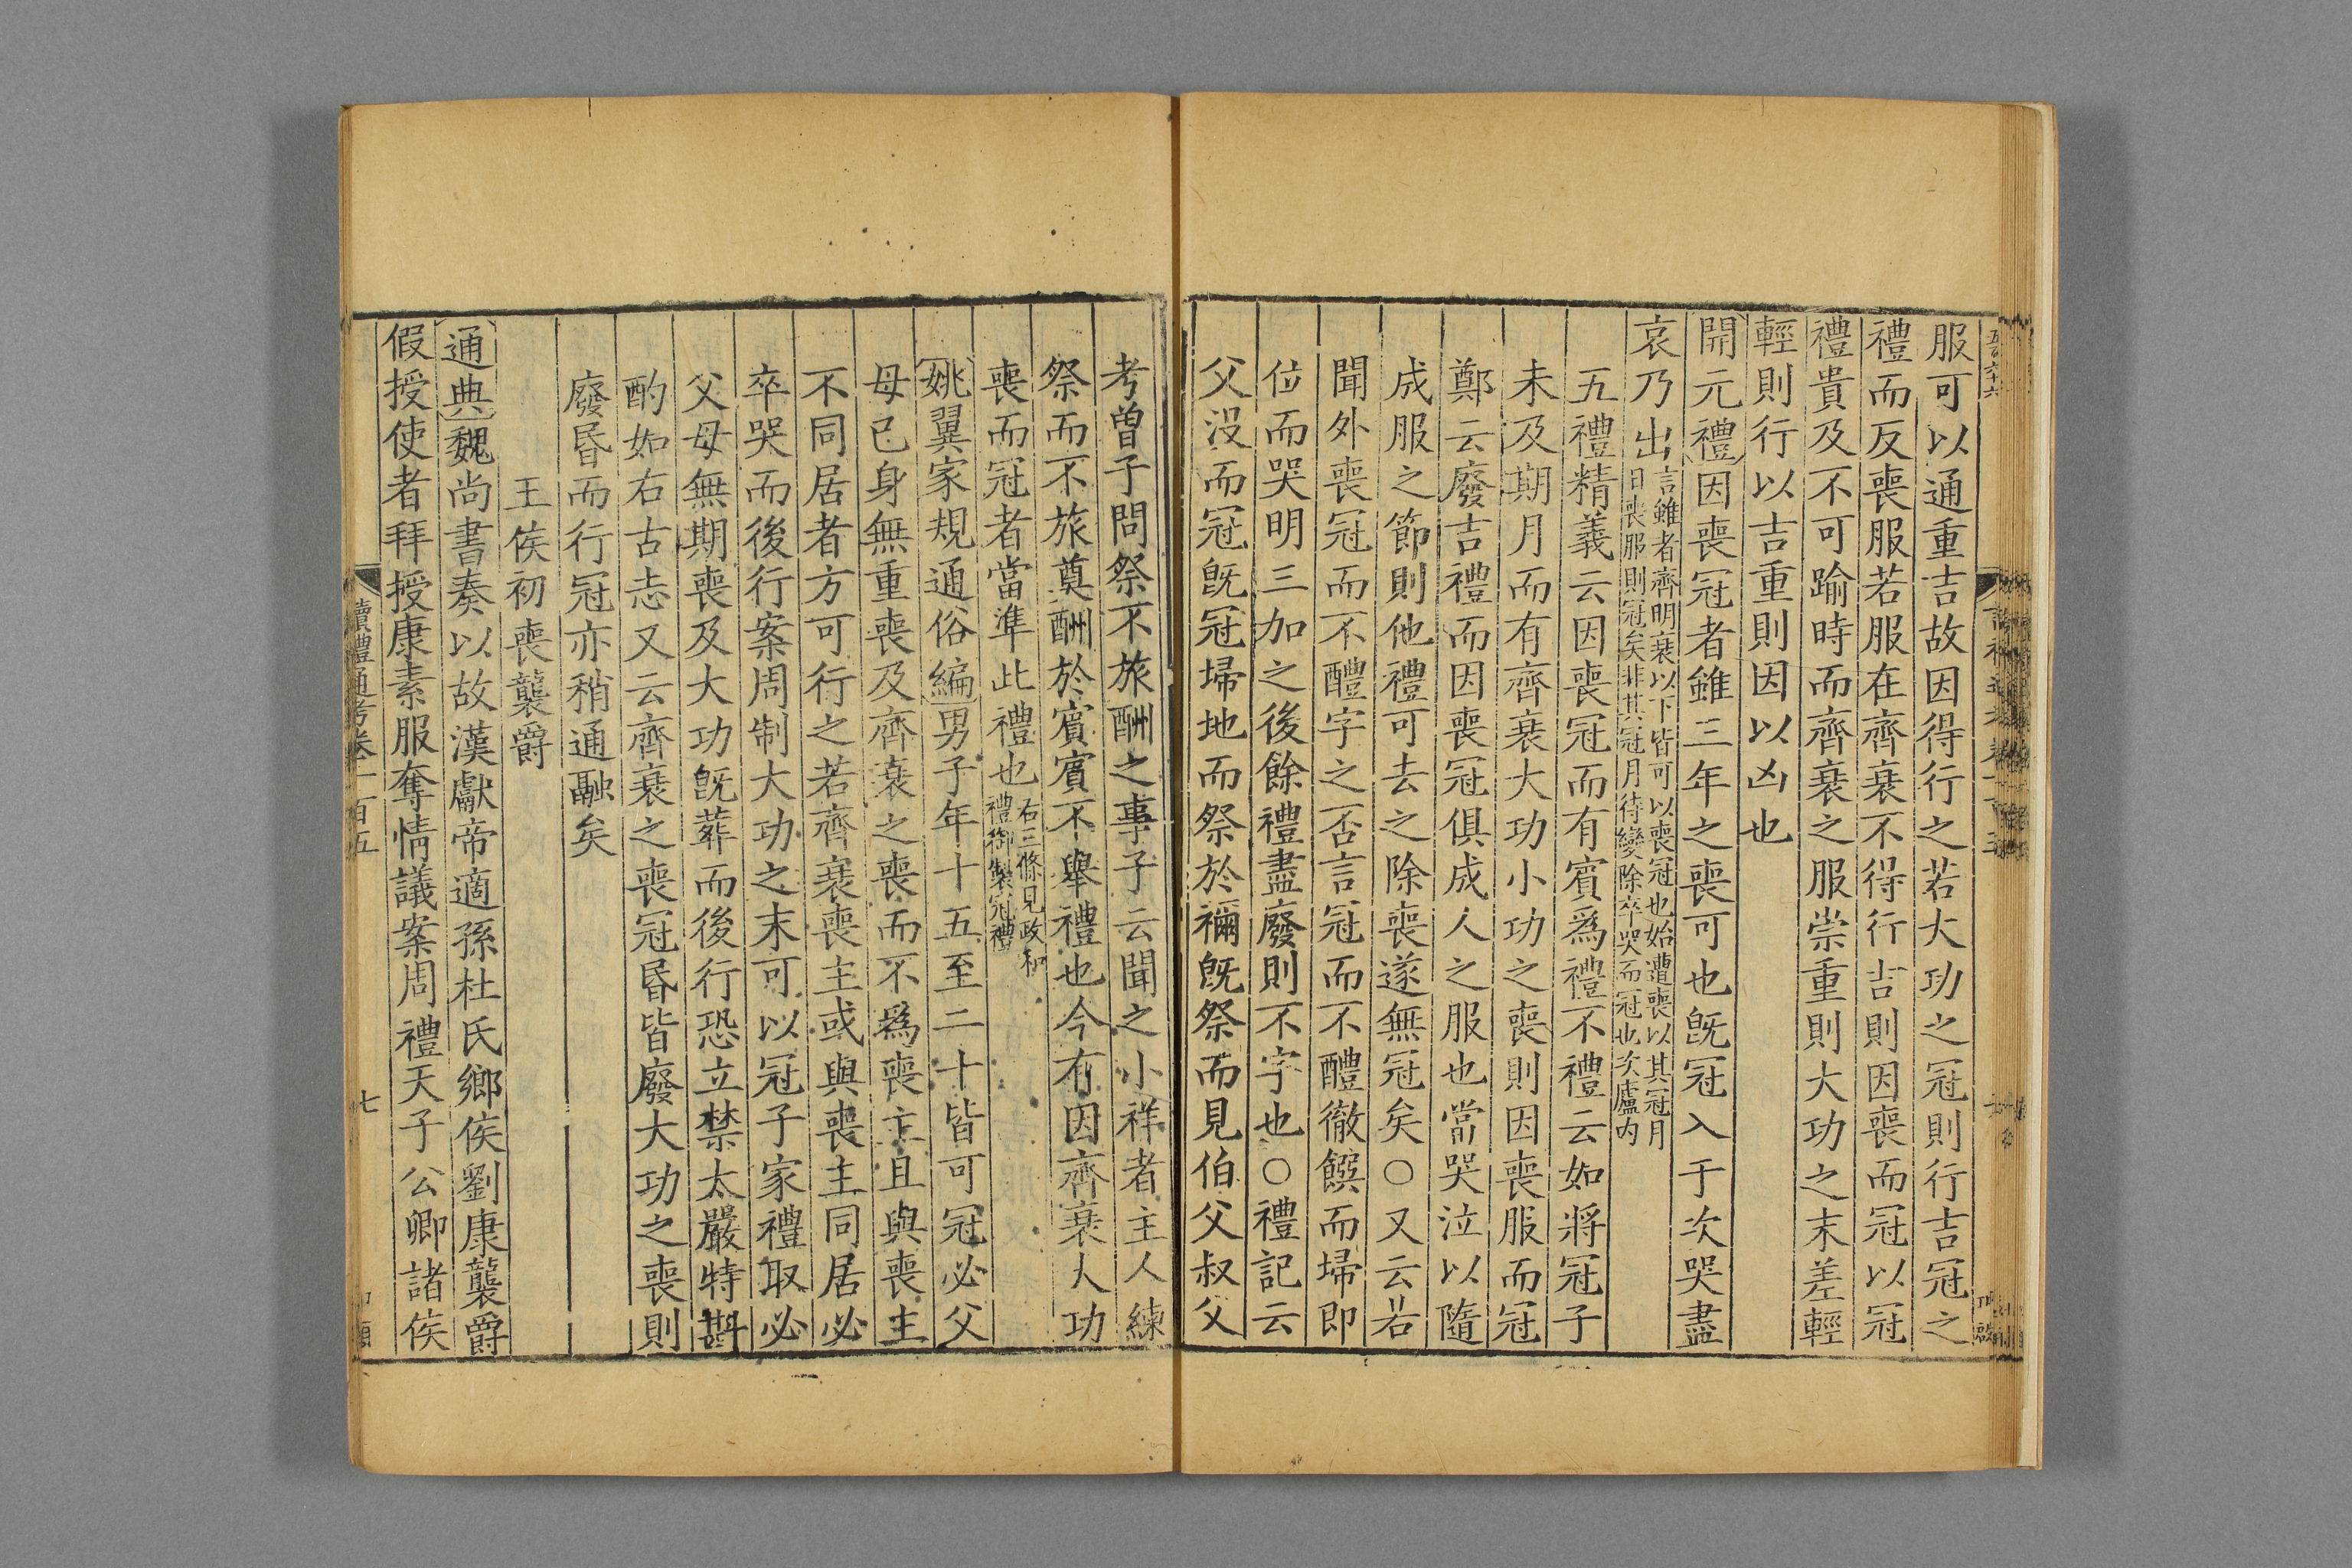 服可以通重吉故因得行之若大功之冠則行吉冠之
禮而反喪服若服在齊衰不得行吉則因喪而冠以冠
禮貴及不可踰時而齊衰之服崇重則大功之末差輕
輕則行以吉重則因以凶也
開元禮因喪冠者雖三年之喪可也旣冠入于次哭盡
哀乃出言雖者齊明衰以下皆可以喪冠也始遭喪以其冠月
日喪服則冠矣非其冠月待變除卒哭而冠也次廬內
五禮精義云因喪冠而有賓爲禮不禮云如將冠子
未及期月而有齊衰大功小功之喪則因喪服而冠
鄭云廢吉禮而因喪冠俱成人之服也當哭泣以隨
成服之節則他禮可去之除喪遂無冠矣○又云若
聞外喪冠而不醴字之否言冠而不醴徹饌而埽即
位而哭明三加之後餘禮盡廢則不字也○禮記云
父沒而冠旣冠埽地而祭於禰旣祭而見伯父叔父
考曾子問祭不旅酬之事子云聞之小祥者主人練
祭而不旅奠酬於賓賓不舉禮也今有因齊衰大功
喪而冠者當準此禮也右三條見政和
禮御製冠禮
姚翼家規通俗編男子年十五至二十皆可冠必父
母已身無重喪及齊衰之喪而不爲喪主且與喪主
不同居者方可行之若齊衰喪主或與喪主同居必
卒哭而後行案周制大功之末可以冠子家禮取必
父母無期喪及大功旣葬而後行恐立禁太嚴特斟
酌如右古忞又云齊衰之喪冠昏皆廢大功之喪則
廢昏而行冠亦稍通融矣
王侯初喪襲爵
通典魏尚書奏以故漢獻帝適孫杜氏鄉侯劉康襲爵
假授使者拜授康素服奪情議案周禮天子公卿諸侯
讀禮通考卷一百五
七